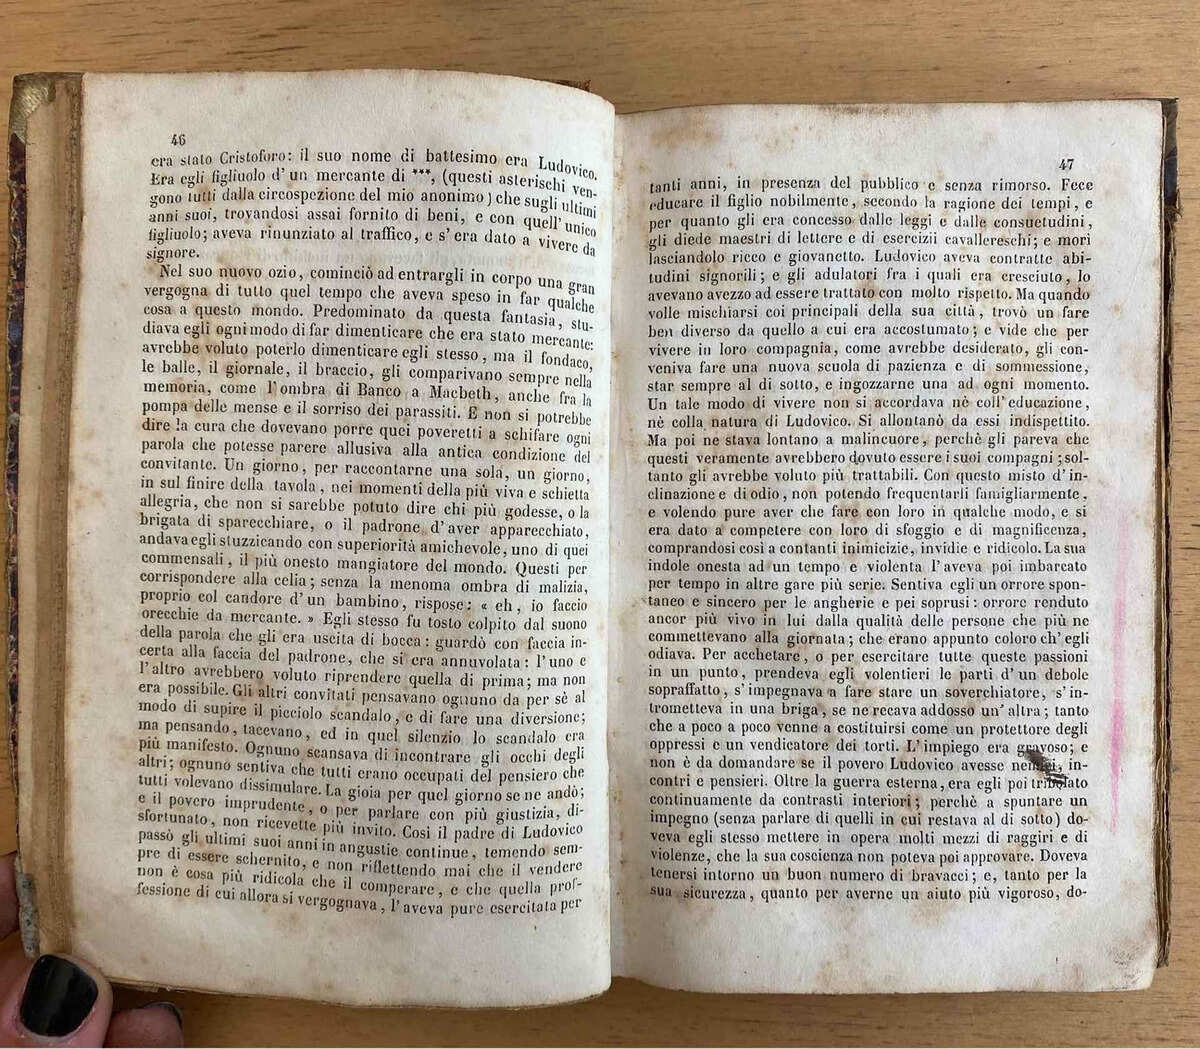 46
era stato Cristoforo: il suo nome di battesimo era Ludovico.
Era egli figliuolo d'un mercante di ***, (questi asterischi ven-
gono tutti dalla circospezione del mio anonimo) che sugli ultimi
anni suoi, trovandosi assai fornito di beni, e con quell'unico
figliuolo; aveva rinunziato al traffico, e s'era dato a vivere da
signore.
Nel suo nuovo ozio, cominciò ad entrargli in corpo una gran
vergogna di tutto quel tempo che aveva speso in far qualche
cosa a questo mondo. Predominato da questa fantasia, stu-
diava egli ogni modo di far dimenticare che era stato mercante:
avrebbe voluto poterlo dimenticare egli stesso, ma il fondaco,
le balle, il giornale, il braccio, gli comparivano sempre nella
memoria, come l'ombra di Banco a Macbeth, anche fra la
pompa delle mense e il sorriso dei parassiti. E non si potrebbe
dire la cura che dovevano porre quei poveretti a schifare ogni
parola che potesse parere allusiva alla antica condizione del
convitante. Un giorno, per raccontarne una sola, un giorno,
in sul finire della tavola, nei momenti della più viva e schietta
allegria, che non si sarebbe potuto dire chi più godesse, o la
brigata di sparecchiare, o il padrone d'aver apparecchiato,
andava egli stuzzicando con superiorità amichevole, uno di quei
commensali, il più onesto mangiatore del mondo. Questi per
corrispondere alla celia; senza la menoma ombra di malizia,
proprio col candore d'un bambino, rispose: « eh, io faccio
orecchie da mercante. » Egli stesso fu tosto colpito dal suono
della parola che gli era uscita di bocca: guardò con faccia in-
certa alla faccia del padrone, che si era annuvolata: l'uno e
l'altro avrebbero voluto riprendere quella di prima; ma non
era possibile. Gli altri convitati pensavano ognuno da per sè al
modo di supire il picciolo scandalo, e di fare una diversione;
ma pensando, tacevano, ed in quel silenzio lo scandalo era
più manifesto. Ognuno scansava di incontrare gli occhi degli
altri; ognuno sentiva che tutti erano occupati del pensiero che
tutti volevano dissimulare. La gioia per quel giorno se ne andò;
e il povero imprudente, o per parlare con più giustizia, di-
sfortunato, non ricevette più invito. Così il padre di Ludovico
passò gli ultimi suoi anni in angustie continue, temendo sem-
pre di essere schernito, e non riflettendo mai che il vendere
non è cosa più ridicola che il comperare, e che quella prof-
fessione di cui allora si vergognava, l'aveva pure esercitata per
47
tanti anni, in presenza del pubblico e senza rimorso. Fece
educare il figlio nobilmente, secondo la ragione dei tempi, e
per quanto gli era concesso dalle leggi e dalle consuetudini,
gli diede maestri di lettere e di esercizii cavallereschi; e morì
lasciandolo ricco e giovanetto. Ludovico aveva contratte abi-
tudini signorili; e gli adulatori fra i quali era cresciuto, lo
avevano avezzo ad essere trattato con molto rispetto. Ma quando
volle mischiarsi coi principali della sua città, trovò un fare
ben diverso da quello a cui era accostumato; e vide che per
vivere in loro compagnia, come avrebbe desiderato, gli con-
veniva fare una nuova scuola di pazienza e di sommessione,
star sempre al di sotto, e ingozzarne una ad ogni momento.
Un tale modo di vivere non si accordava nè coll'educazione,
nè colla natura di Ludovico. Si allontanò da essi indispettito.
Ma poi ne stava lontano a malincuore, perchè gli pareva che
questi veramente avrebbero dovuto essere i suoi compagni; sol-
tanto gli avrebbe voluto più trattabili. Con questo misto d'in-
clinazione e di odio, non potendo frequentarli famigliarmente,
e volendo pure aver che fare con loro in qualche modo, e si
era dato a competere con loro di sfoggio e di magnificenza,
comprandosi così a contanti inimicizie, invidie e ridicolo. La sua
indole onesta ad un tempo e violenta l'aveva poi imbarcato
per tempo in altre gare più serie. Sentiva egli un orrore spon-
taneo e sincero per le angherie e pei soprusi: orrore renduto
ancor più vivo in lui dalla qualità delle persone che più ne
commettevano alla giornata; che erano appunto coloro ch'egli
odiava. Per acchetare, o per esercitare tutte queste passioni
in un punto, prendeva egli volentieri le parti d'un debole
sopraffatto, s'impegnava a fare stare un soverchiatore, s'in-
trometteva in una briga, se ne recava addosso un'altra; tanto
che a poco a poco venne a costituirsi come un protettore degli
oppressi e un vendicatore dei torti. L'impiego era gravoso; e
non è da domandare se il povero Ludovico avesse nemici, in-
contri e pensieri. Oltre la guerra esterna, era egli poi tribolato
continuamente da contrasti interiori; perchè a spuntare un
impegno (senza parlare di quelli in cui restava al di sotto) do-
veva egli stesso mettere in opera molti mezzi di raggiri e di
violenze, che la sua coscienza non poteva poi approvare. Doveva
tenersi intorno un buon numero di bravacci; e, tanto per la
sua sicurezza, quanto per averne un aiuto più vigoroso, do-